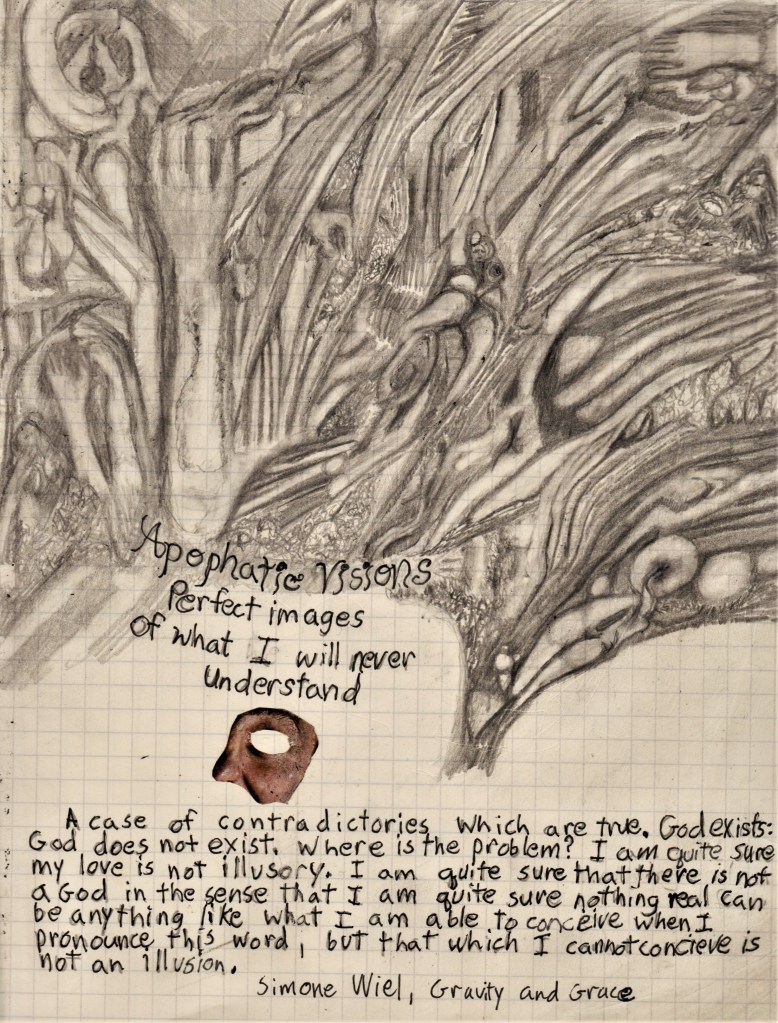 Apophatic Visions
Perfect images
of what I will never
Understand
A case of contradictories which are true. God exists:
God does not exist. Where is the problem? I am quite sure
my love is not illusory. I am quite sure that there is not
a God in the sense that I am quite sure nothing real can
be anything like what I am able to conceive when I
pronounce this word, but that which I cannot concieve is
not an illusion.
Simone Wiel, Gravity and Grace